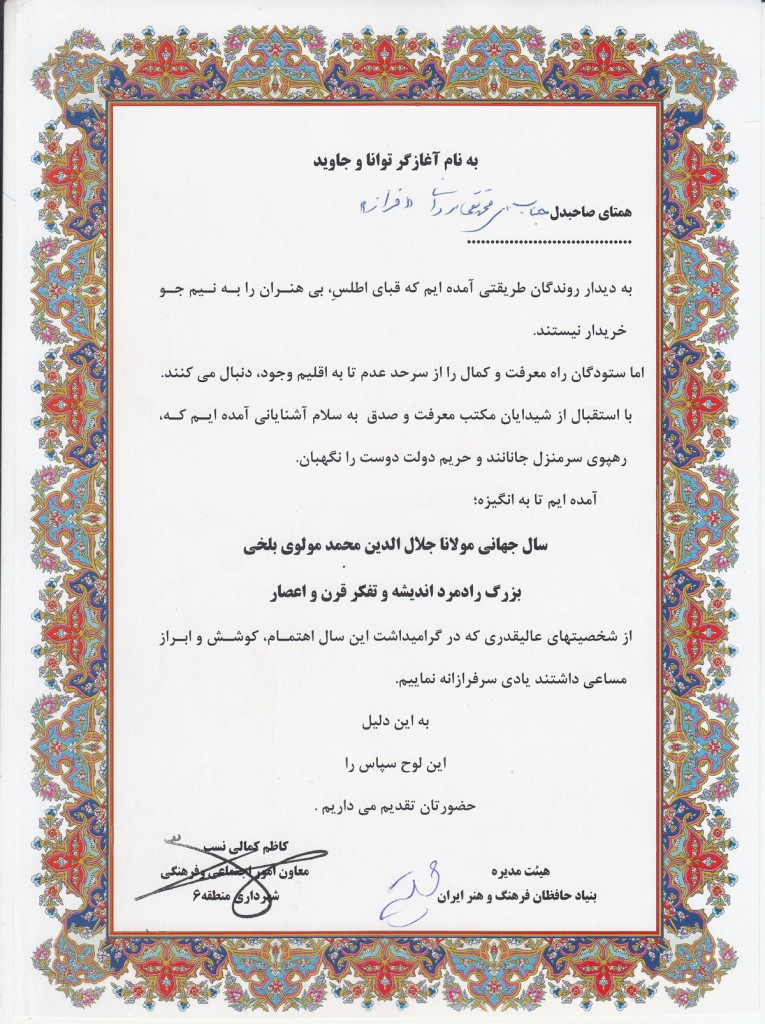 به نام آغازگر توانا و جاوید
همتای صاحبدل جناب «فراز»
به دیدار روندگان طریقتی آمده ایم که قبای اطلسِ، بی هنـران را بـه نـیم جـو
خریدار نیستند.
اما ستودگان راه معرفت و کمال را از سرحد عدم تا به اقلیم وجود، دنبال می کنند.
با استقبال از شیدایان مکتب معرفت و صدق به سلام آشنایانی آمده ایـم کـه،
رهپوی سرمنزل جانانند و حریم دولت دوست را نگهبان.
آمده ایم تا به انگیزه؛
سال جهانی مولانا جلال الدین محمد مولوی بلخی
بزرگ رادمرد اندیشه و تفکر قرن و اعصار
از شخصیتهای عالیقدری که در گرامیداشت این سال اهتمـام، کوشـش و ابـراز
مساعی داشتند یادی سرفرازانه نماییم.
به این دلیل
این لوح سپاس را
حضورتان تقدیم می داریم .
هیئت مدیره
بنیاد حافظان فرهنگ و هنر ایران
کاظم کمالی نسب
معاون امور اجتماعی وفرهنگی
شهرداری منطقه۶